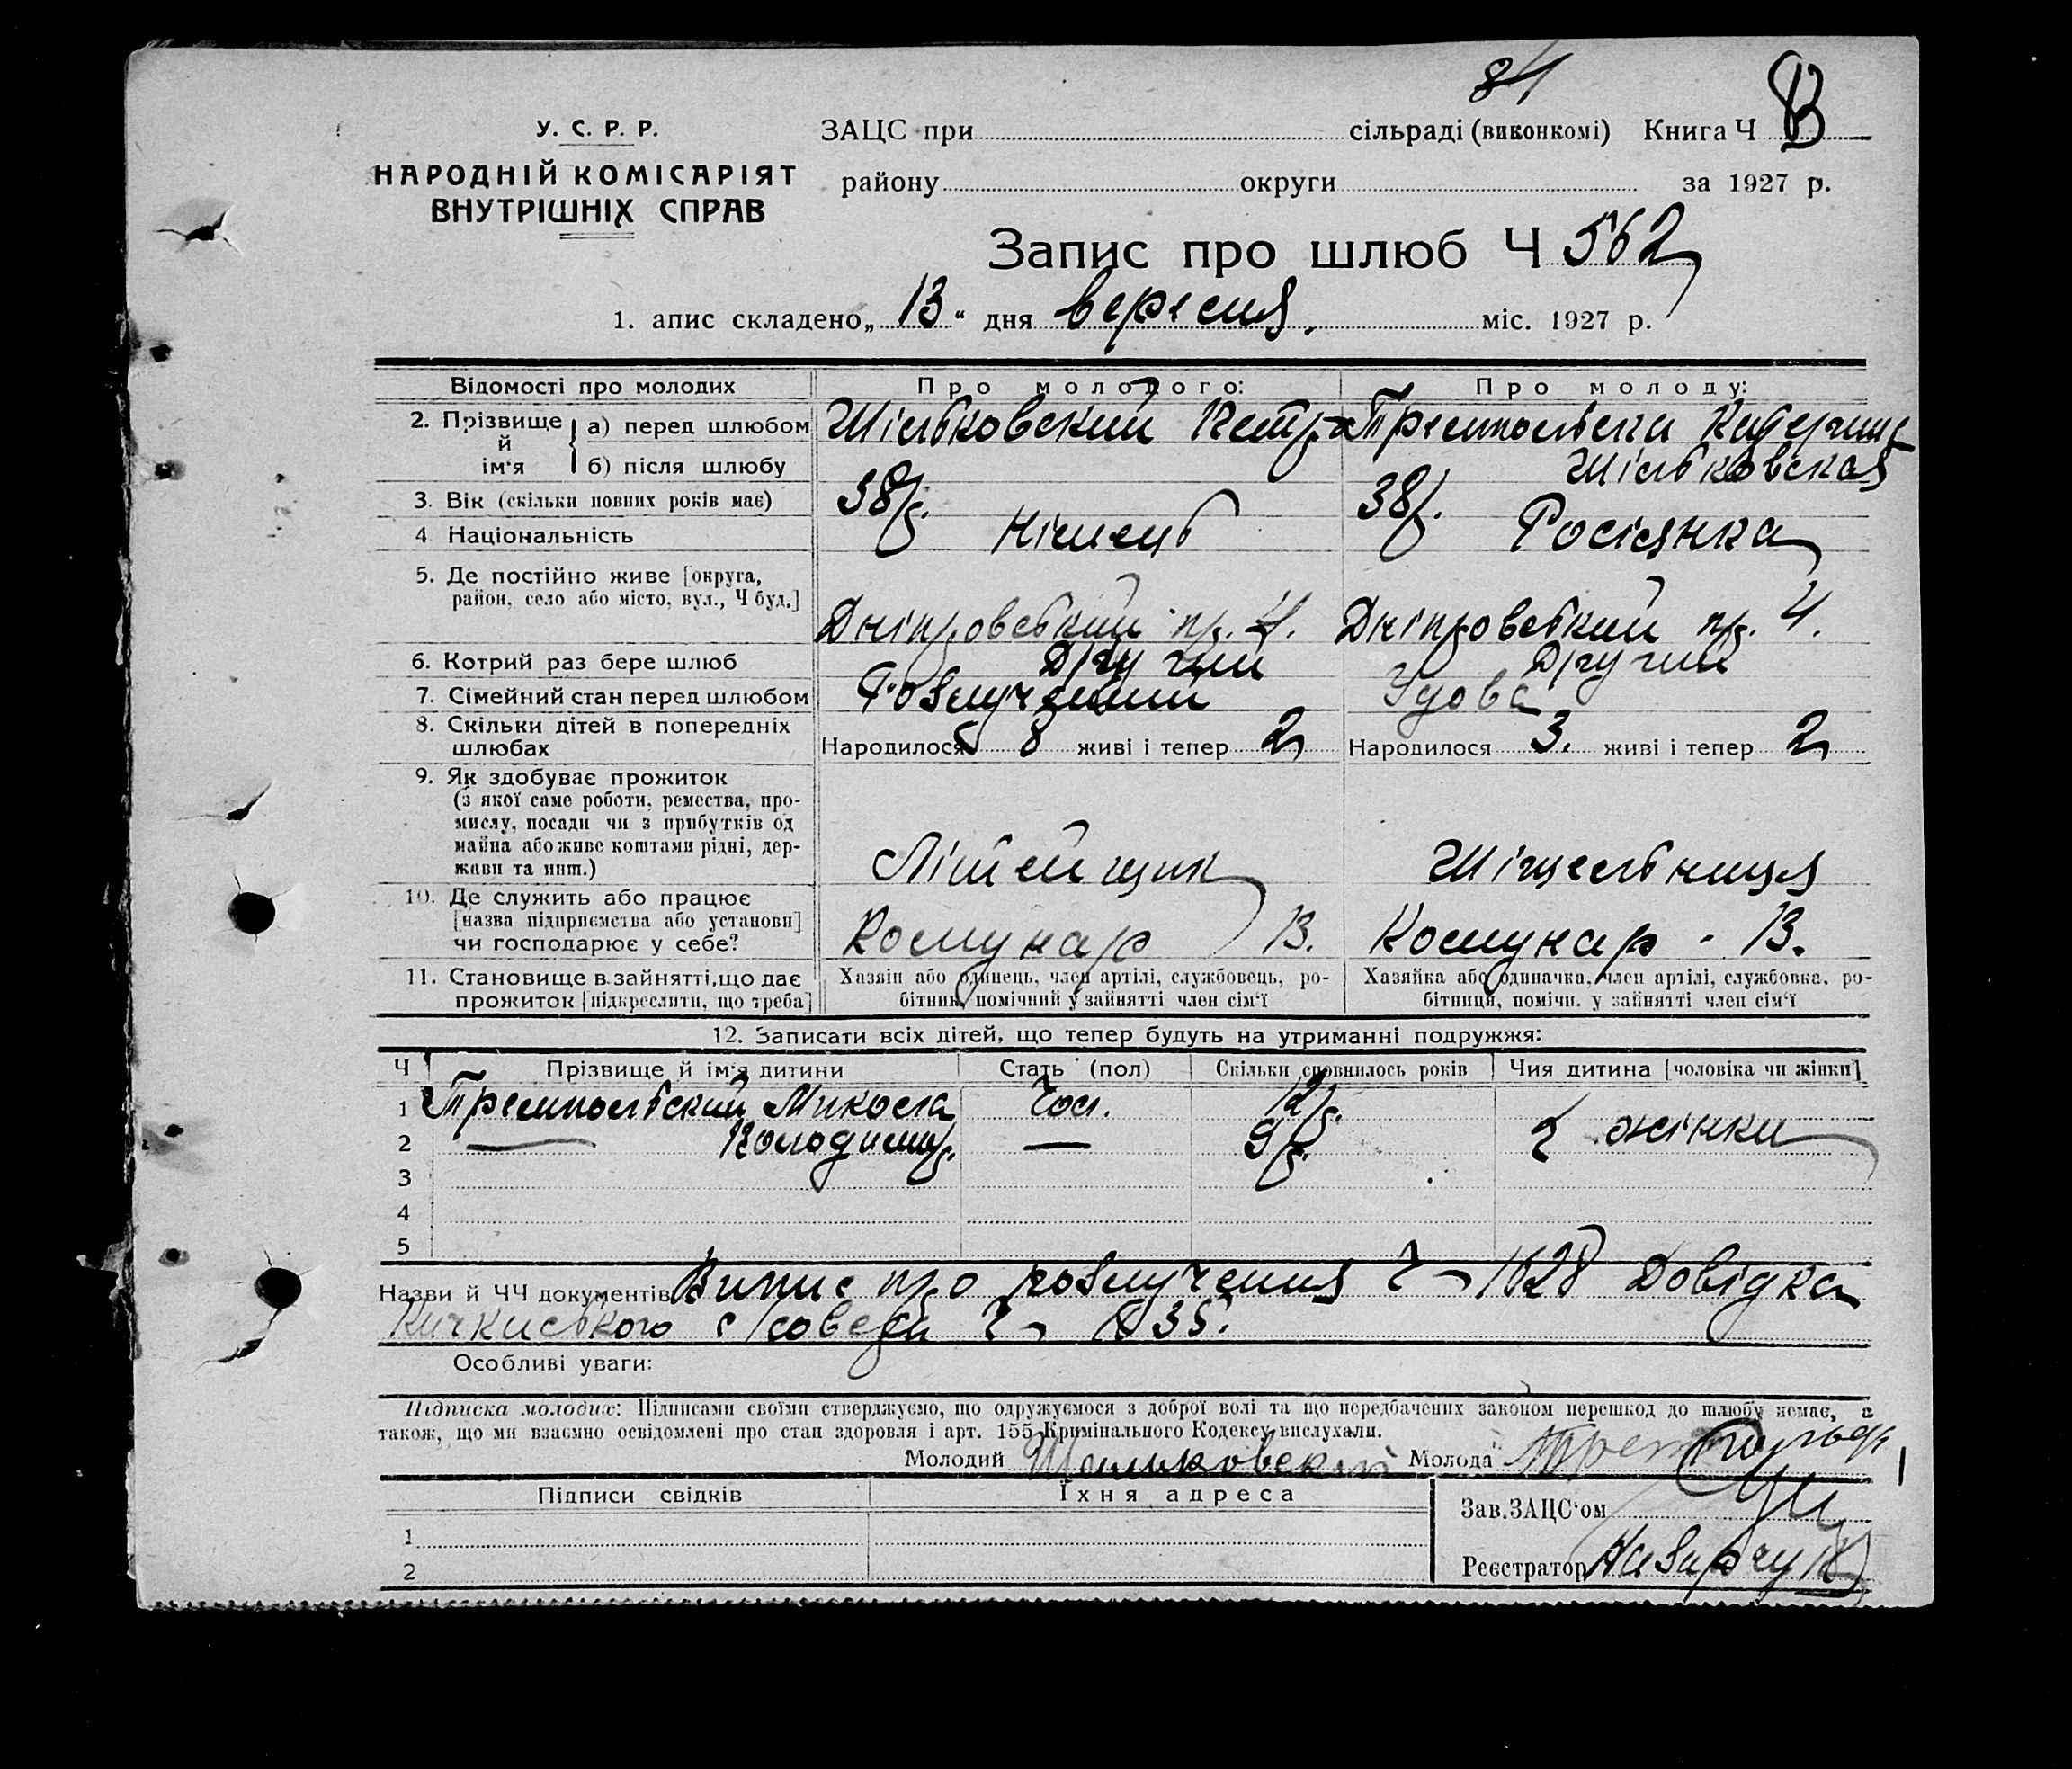 84
У. С. Р. Р.
НАРОДНІЙ КОМІСАРІЯТ
ВНУТРІШНІХ СПРАВ
ЗАЦС при сільраді (виконкомі) Книга Ч В
району округи за 1927 р.
Запис про шлюб Ч 562
1. апис складено „ 13 “ дня вересня міс. 1927 р.
Відомості про молодих Про молодого: Про молоду:
2. Прізвище й ім'я
а) перед шлюбом Петро
б) після шлюбу
3. Вік (скільки повних років має) 38 р. 38 р.
4 Національність Німець Росіянка
5. Де постійно живе [округа,
район, село або місто, вул., Ч буд.] Дніпровський пр. 4. Дніпровський пр. 4.
6. Котрий раз бере шлюб Другий Другий
7. Сімейний стан перед шлюбом Розлучений Удова
8. Скільки дітей в попередніх
шлюбах Народилося 8 живі і тепер 2 Народилося 3. живі і тепер 2
9. Як здобуває прожиток
(з якої саме роботи, ремества, про-
мислу, посади чи з прибутків од
майна або живе коштами рідні, дер-
жави та инш.) Літейщик
10. Де служить або працює
[назва підприємства або установи]
чи господарює у себе? Комунар В. Комунар - В.
11. Становище в зайнятті, що дає
прожиток [підкреслити, що треба]
Хазяїн або одинець, член артілі, службовець, ро-
бітник, помічний у зайнятті член сім'ї
Хазяйка або одиначка, член артілі, службовка, ро-
бітниця, помічн. у зайнятті член сім'ї
12. Записати всіх дітей, що тепер будуть на утриманні подружжя:
Ч Прізвище й ім'я дитини Стать (пол) Скільки сповнилось років Чия дитина [чоловіка чи жінки]
1 Микола Чол. 12 р.
2 — Володимир — 9 р. жінки
3
4
5
Назви й ЧЧ документів Випис про розлучення Ч 1628 Довідка
Кичкаського
Особливі уваги:
Підписка молодих: Підписами своїми стверджуємо, що одружуємося з доброї волі та що передбачених законом перешкод до шлюбу немає, а
також, що ми взаємно освідомлені про стан здоровля і арт. 155 Кримінального Кодексу вислухали.
Молодий Молода
Підписи свідків Їхня адреса Зав. ЗАЦС'ом
1
2 Реєстратор